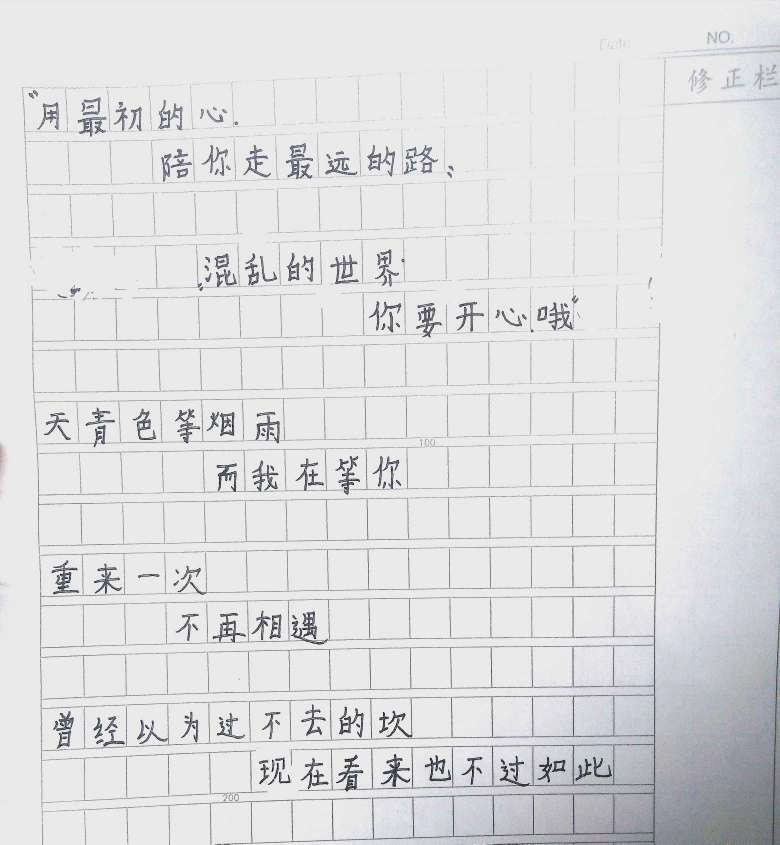 NO.
修正栏
“用最初的心.
陪你走最远的路、
“混乱的世界.
你要开心哦”
天青色等烟雨
100
而我在等你
重来一次
不再相遇
曾经以为过不去的坎
现在看来也不过如此
200